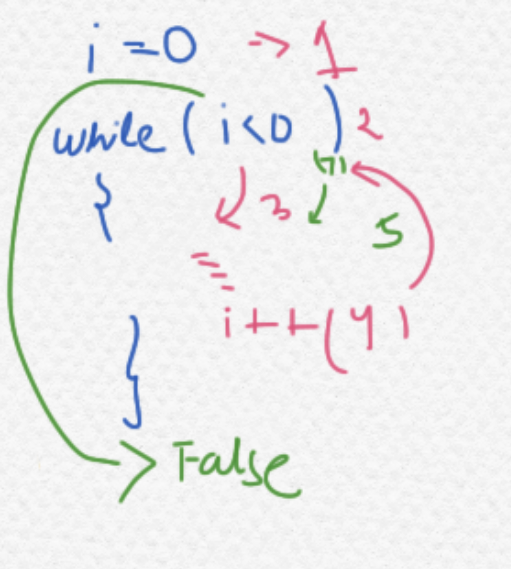 i = 0 -> 1
while ( i < 0 ) 2
{ 3
5
i++ (4)
}
False